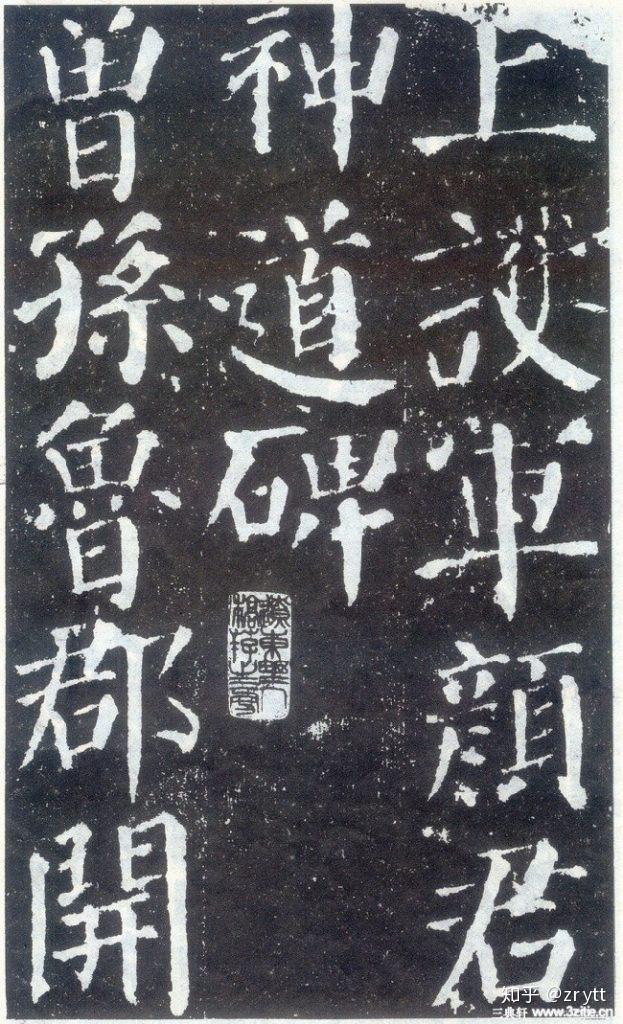 上護軍顏君
神道碑
曾孫魯郡開
知乎 @zrytt
三典轩 www.3zitie.cn